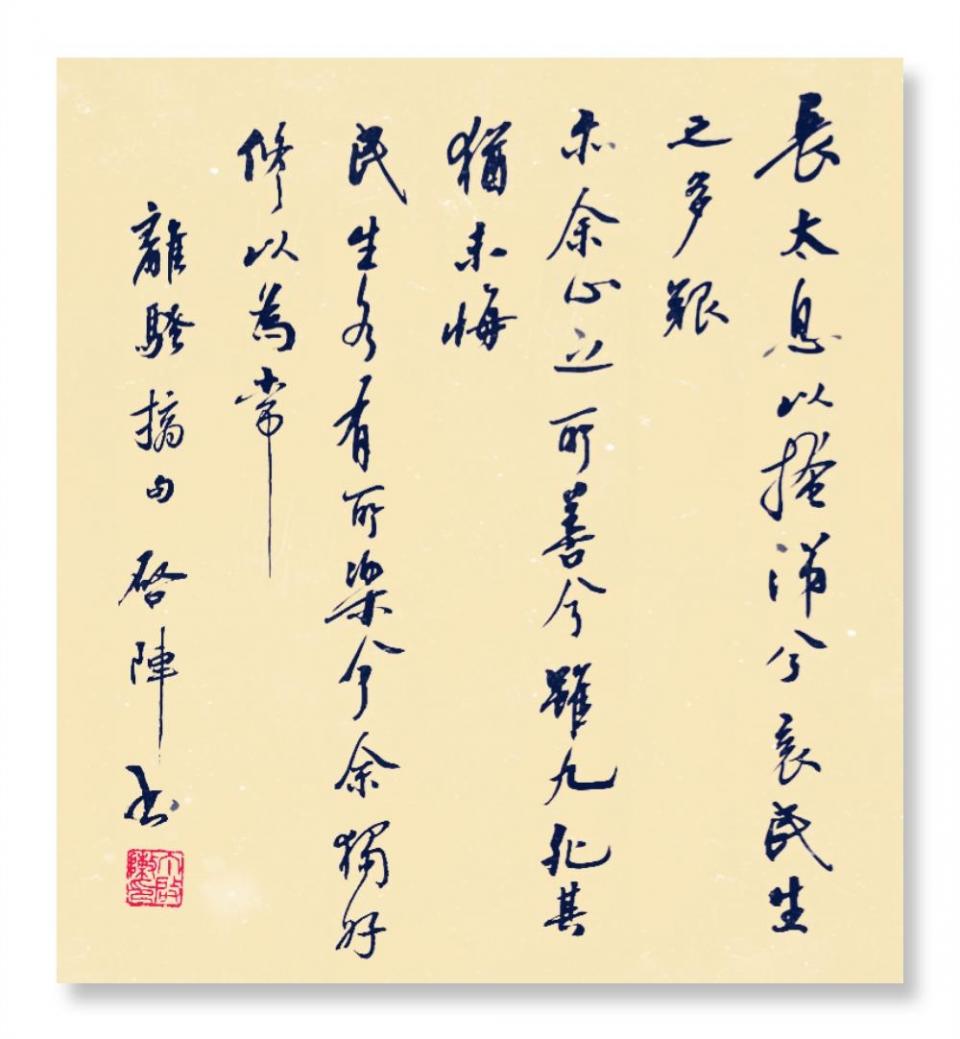 長太息以掩涕兮哀民生
之多艱
亦余心之所善兮雖九死其
猶未悔
民生各有所樂兮余獨好
修以為常
離騷摘句 啓陣書